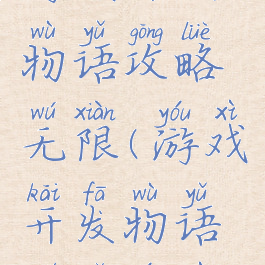 wù yǔ gōng lüè
物语攻略
wú xiàn yóu xì
无限(游戏
kāi fā wù yǔ
开发物语